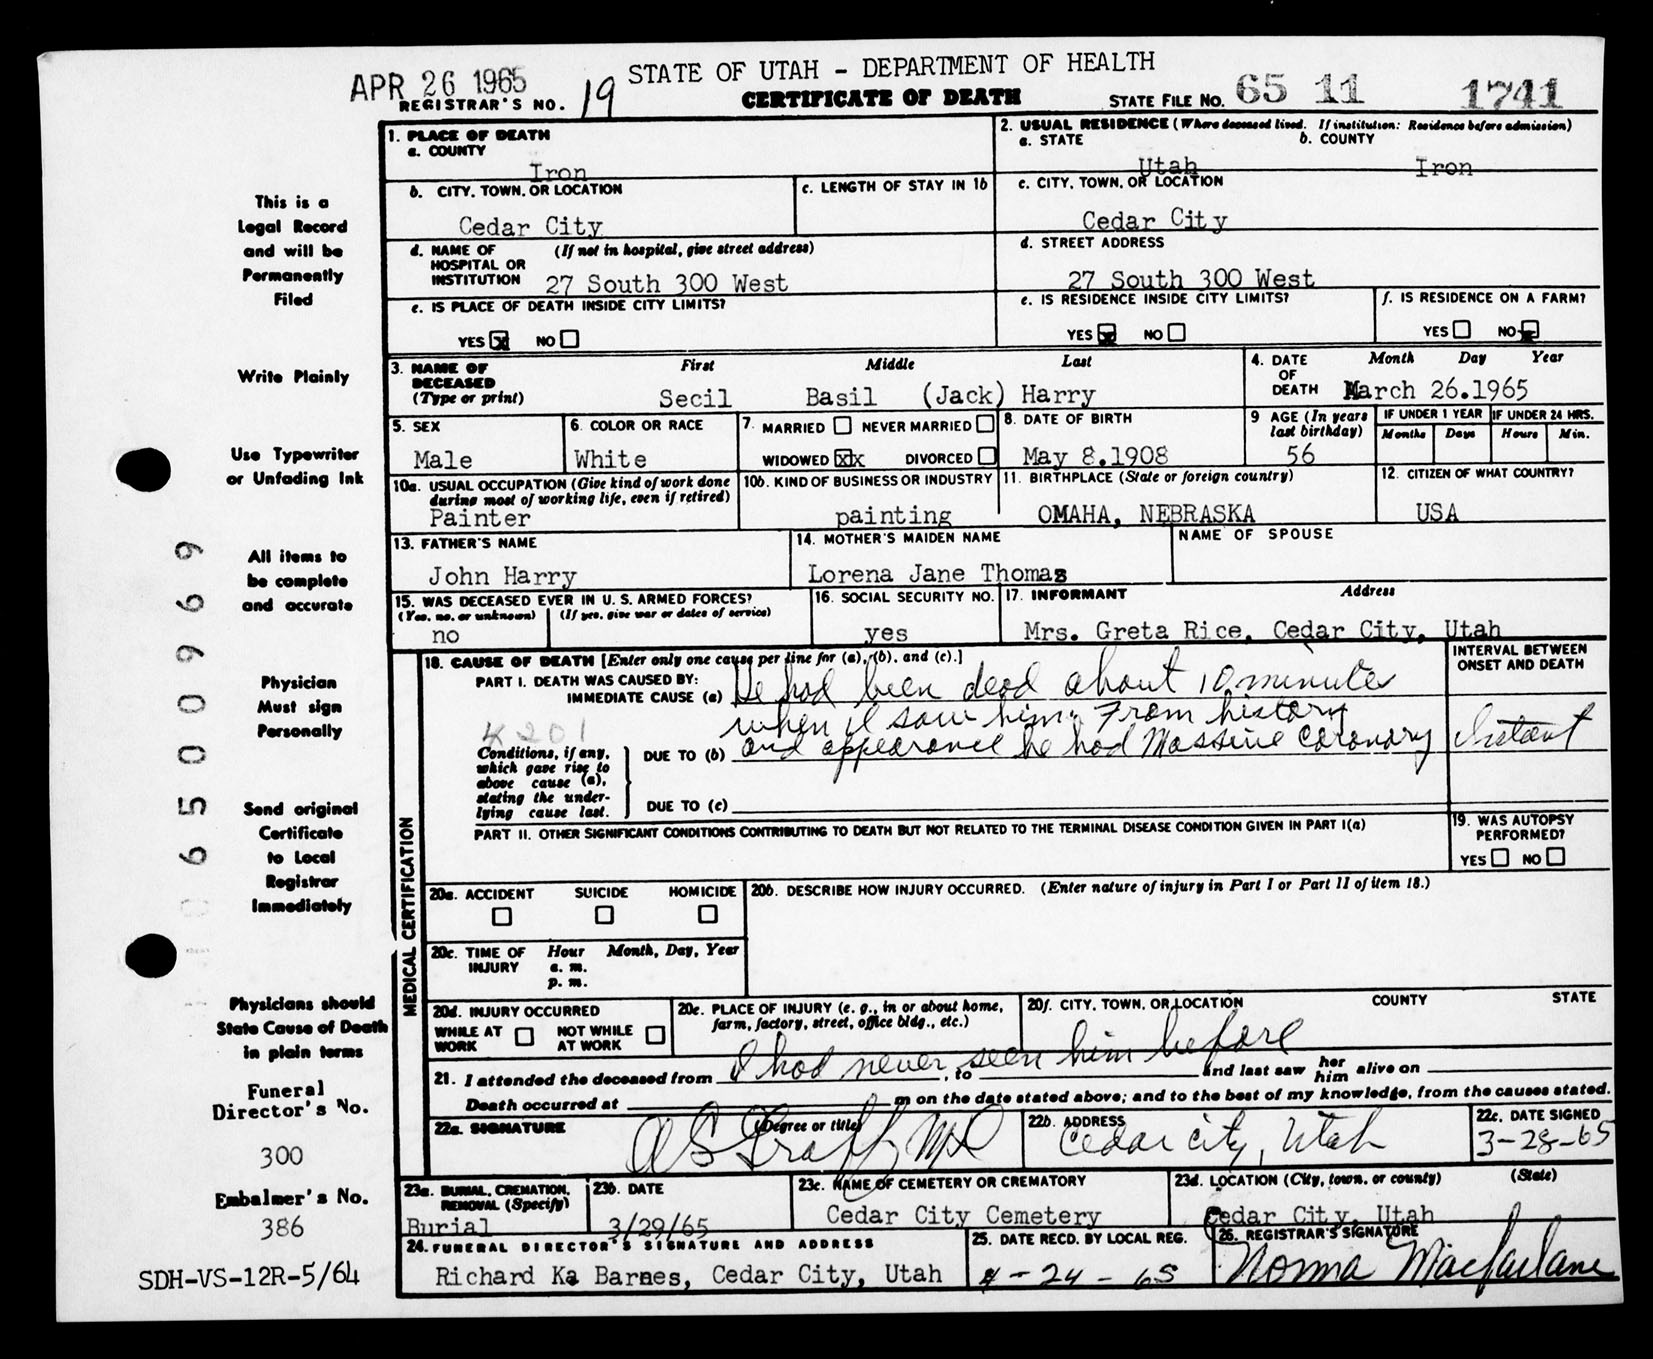 APR 26 1965
STATE OF UTAH - DEPARTMENT OF HEALTH
REGISTRAR'S NO. 19
CERTIFICATE OF DEATH
STATE FILE NO. 65 11 1741
This is a
Legal Record
and will be
Permanently
Filed
Write Plainly
Use Typewriter
or Unfading Ink
All items to
be complete
and accurate
Physician
Must sign
Personally
Send original
Certificate
to Local
Registrar
Immediately
Physicians should
State Cause of Death
in plain terms
Funeral
Director's No.
300
Embalmer's No.
386
SDH-VS-12R-5/64
6500969
1. PLACE OF DEATH
a. COUNTY
Iron
2. USUAL RESIDENCE (Where deceased lived. If institution: Residence before admission)
a. STATE b. COUNTY
Utah Iron
b. CITY, TOWN, OR LOCATION
Cedar City
c. LENGTH OF STAY IN 1b
c. CITY, TOWN, OR LOCATION
Cedar City
d. NAME OF (If not in hospital, give street address)
HOSPITAL OR
INSTITUTION 27 South 300 West
d. STREET ADDRESS
27 South 300 West
e. IS PLACE OF DEATH INSIDE CITY LIMITS?
YES X NO
e. IS RESIDENCE INSIDE CITY LIMITS?
YES X NO
f. IS RESIDENCE ON A FARM?
YES NO X
3. NAME OF First Middle Last
DECEASED
(Type or print) Secil Basil (Jack) Harry
4. DATE Month Day Year
OF
DEATH March 26.1965
5. SEX
Male
6. COLOR OR RACE
White
7. MARRIED NEVER MARRIED
WIDOWED XX DIVORCED
8. DATE OF BIRTH
May 8.1908
9 AGE (In years
last birthday)
56
IF UNDER 1 YEAR IF UNDER 24 HRS.
Months Days Hours Min.
10a. USUAL OCCUPATION (Give kind of work done
during most of working life, even if retired)
Painter
10b. KIND OF BUSINESS OR INDUSTRY
painting
11. BIRTHPLACE (State or foreign country)
OMAHA, NEBRASKA
12. CITIZEN OF WHAT COUNTRY?
USA
13. FATHER'S NAME
John Harry
14. MOTHER'S MAIDEN NAME
Lorena Jane Thomas
NAME OF SPOUSE
15. WAS DECEASED EVER IN U. S. ARMED FORCES?
(Yes, no, or unknown) (If yes, give war or dates of service)
no
16. SOCIAL SECURITY NO.
yes
17. INFORMANT Address
Mrs. Greta Rice, Cedar City, Utah
MEDICAL CERTIFICATION
18. CAUSE OF DEATH [Enter only one cause per line for (a), (b), and (c).]
INTERVAL BETWEEN
ONSET AND DEATH
PART I. DEATH WAS CAUSED BY:
IMMEDIATE CAUSE (a) He had been dead about 10 minutes
when I saw him. From history
4201
Conditions, if any,
which gave rise to
above cause (a),
stating the under-
lying cause last.
DUE TO (b) and appearance he had Massive Coronary Instant
DUE TO (c)
PART II. OTHER SIGNIFICANT CONDITIONS CONTRIBUTING TO DEATH BUT NOT RELATED TO THE TERMINAL DISEASE CONDITION GIVEN IN PART I(a)
19. WAS AUTOPSY
PERFORMED?
YES NO
20a. ACCIDENT SUICIDE HOMICIDE
20b. DESCRIBE HOW INJURY OCCURRED. (Enter nature of injury in Part I or Part II of item 18.)
20c. TIME OF Hour Month, Day, Year
INJURY a. m.
p. m.
20d. INJURY OCCURRED
WHILE AT WORK NOT WHILE AT WORK
20e. PLACE OF INJURY (e. g., in or about home,
farm, factory, street, office bldg., etc.)
20f. CITY, TOWN, OR LOCATION COUNTY STATE
I had never seen him before
21. I attended the deceased from , to and last saw her him alive on
Death occurred at m on the date stated above; and to the best of my knowledge, from the causes stated.
22a. SIGNATURE (Degree or title)
22b. ADDRESS
Cedar City, Utah
22c. DATE SIGNED
3-28-65
23a. BURIAL, CREMATION,
REMOVAL (Specify)
Burial
23b. DATE
3/29/65
23c. NAME OF CEMETERY OR CREMATORY
Cedar City Cemetery
23d. LOCATION (City, town, or county) (State)
Cedar City, Utah
24. FUNERAL DIRECTOR'S SIGNATURE AND ADDRESS
Richard Ka Barnes, Cedar City, Utah
25. DATE RECD. BY LOCAL REG.
4-24-65
26. REGISTRAR'S SIGNATURE
Norma Macfarlane